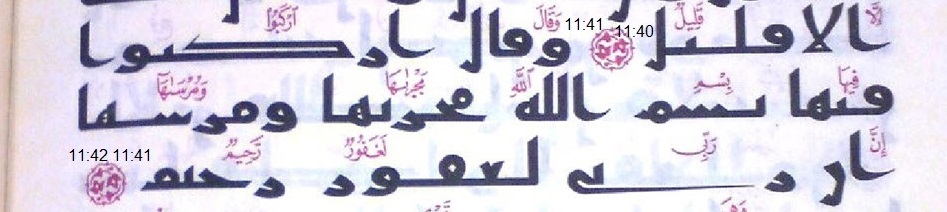 الا قليل 11:40 11:41 وقال اركبوا
إِلَّا قَلِيلٌ وَقَالَ ٱرْكَبُوا۟
فيها بسم الله مجريها ومرسها
فِيهَا بِسْمِ ٱللَّهِ مَجْر۪ىٰهَا وَمُرْسَىٰهَا
ان ربى لغفور رحيم 11:41 11:42
إِنَّ رَبِّى لَغَفُورٌ رَّحِيمٌ